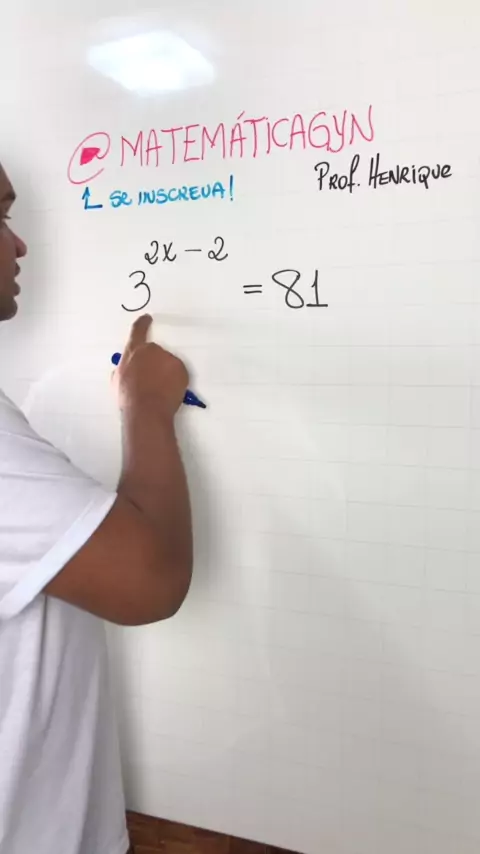 @MATEMÁTICAGYN
SE INSCREVA!
PROF. HENRIQUE
3^{2x-2} = 81